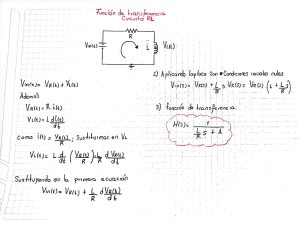 Función de transferencia
Circuito RL
R
Vin(t)
L
VL(t)
Vin(t) = VR(t) + VL(t)
Además
VR(t) = R i(t)
VL(t) = L di(t)/dt
como i(t) = VR(t)/R ; Sustituimos en VL
VL(t) = L d/dt (VR(t)/R) = L/R dVR(t)/dt
Sustituyendo en la primera ecuación
Vin(t) = VR(t) + L/R dVR(t)/dt
2) Aplicando Laplace con condiciones iniciales nulas
Vin(s) = VR(s) + L/R s VR(s) = VR(s) (1 + L/R s)
3) Función de transferencia
H(s) = 1 / (L/R s + 1)